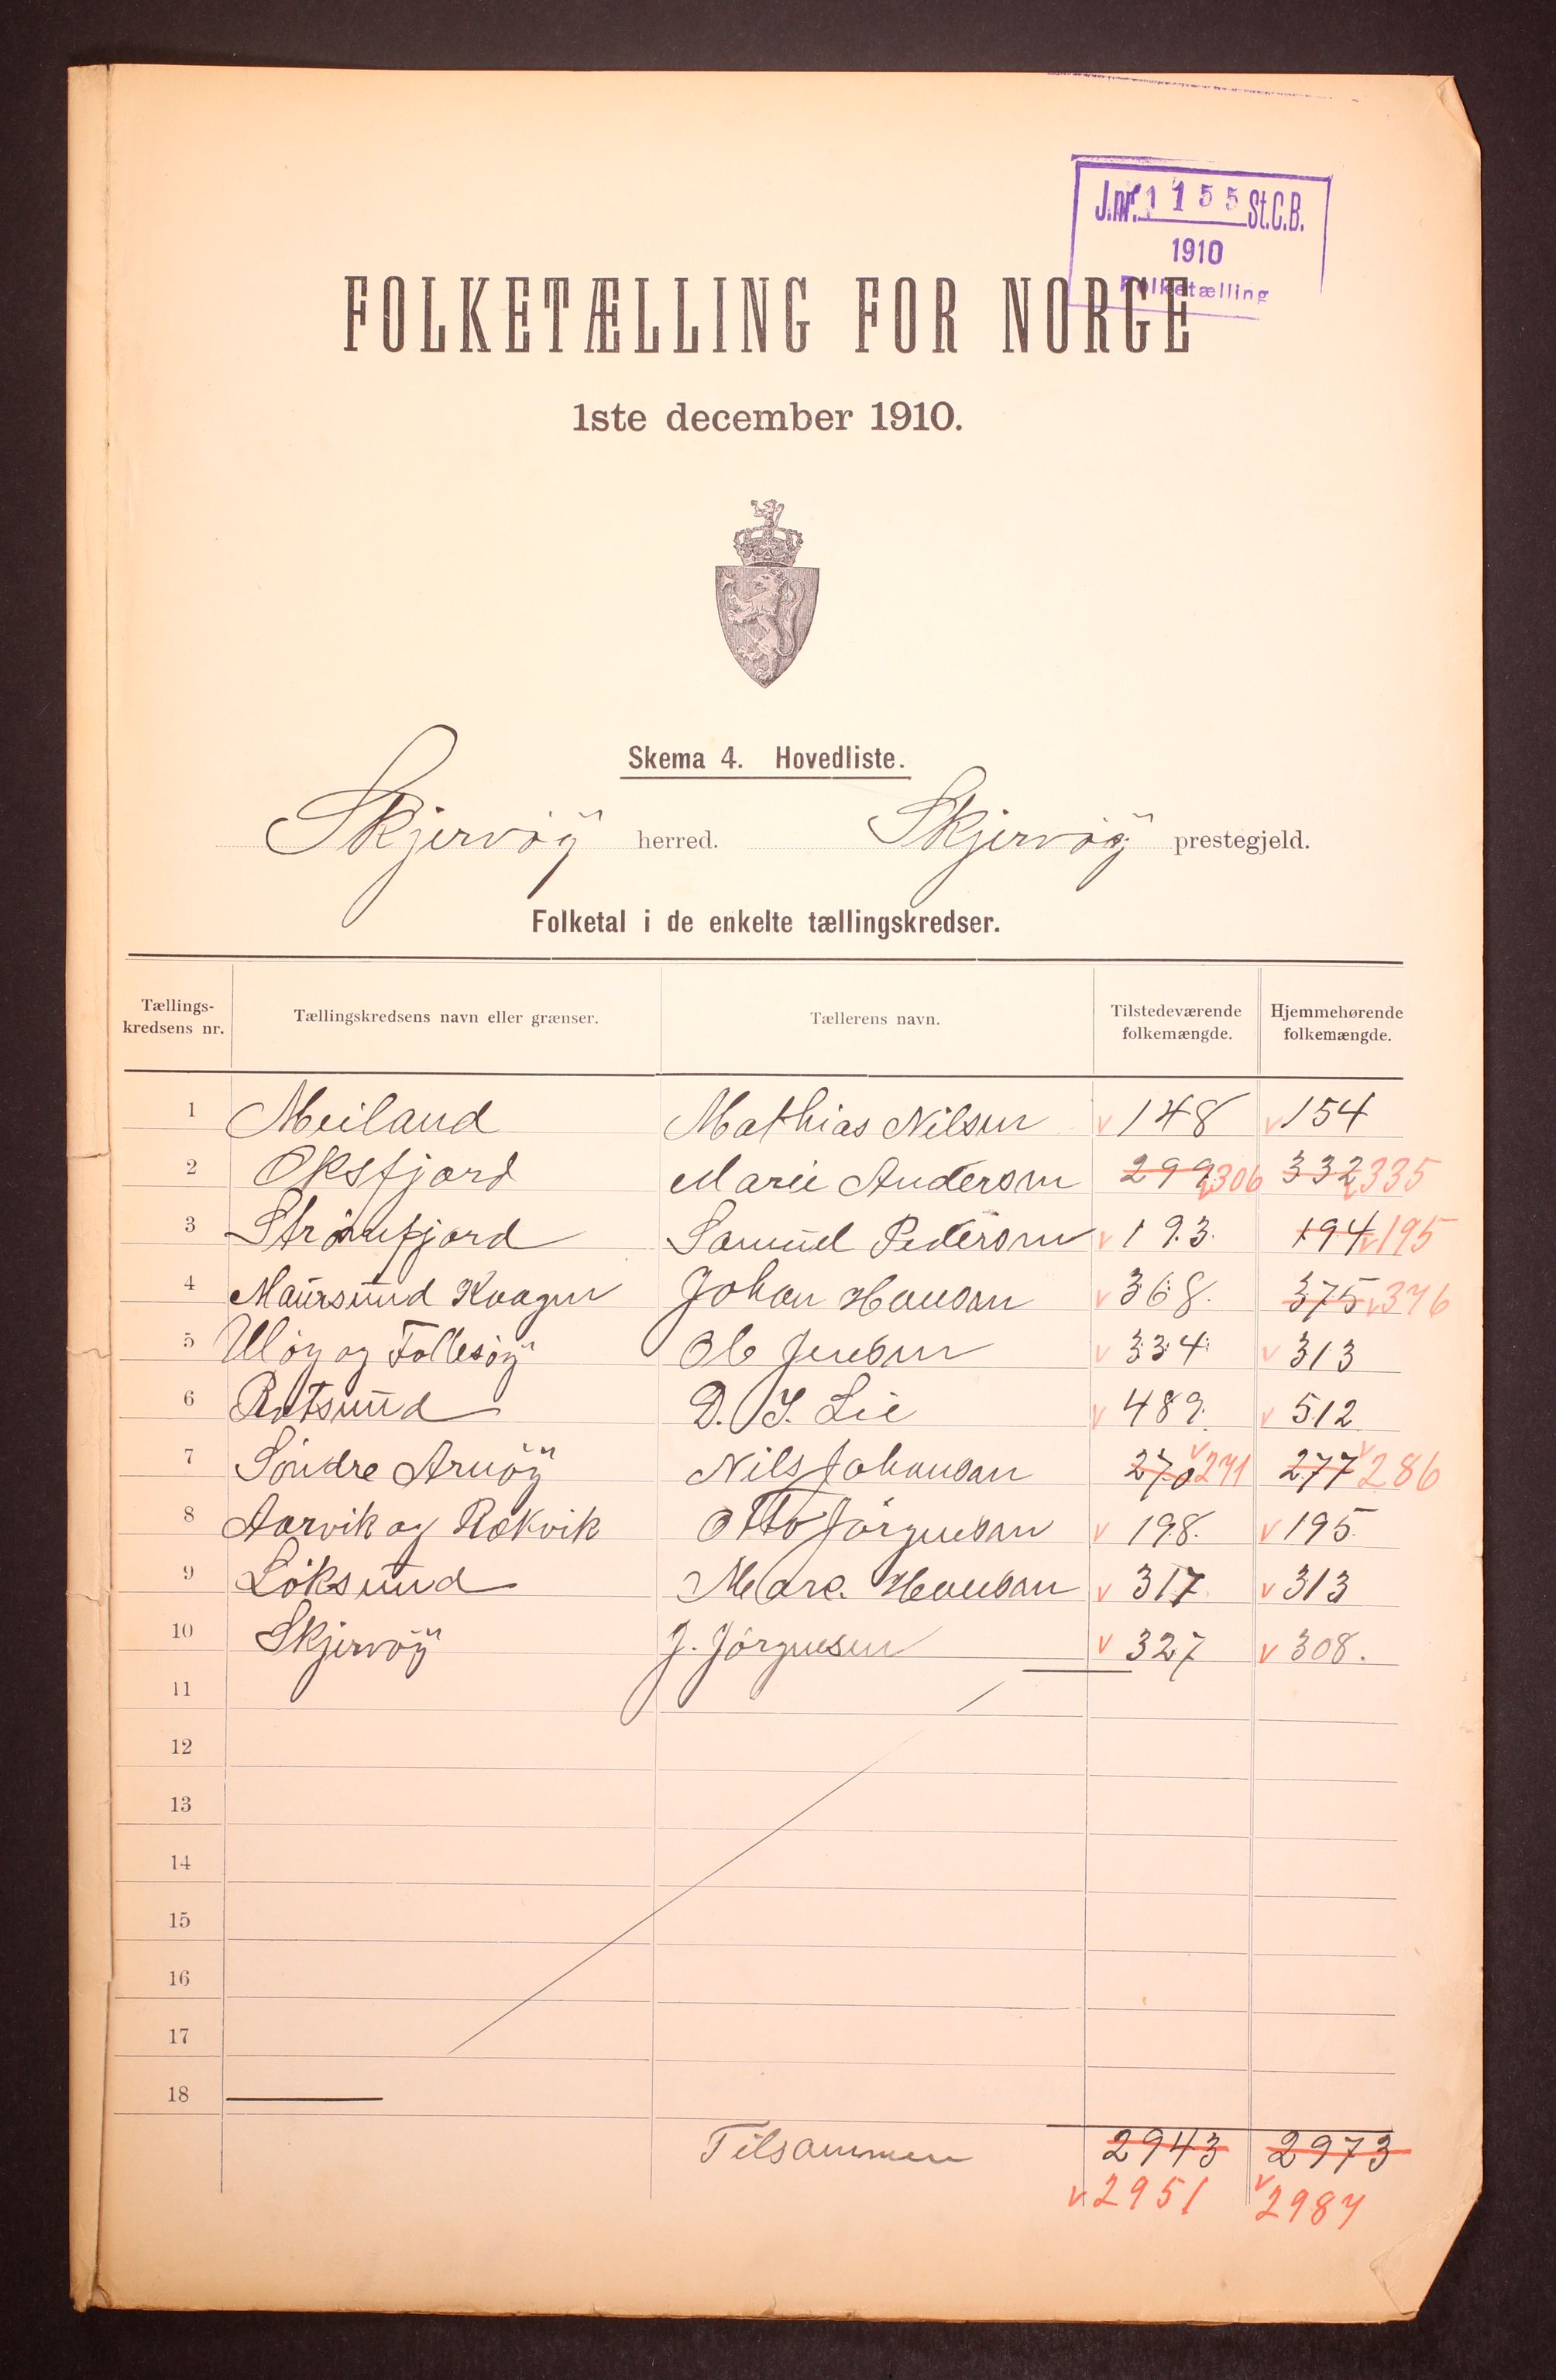 J.nr. 1155 St.C.B.
1910
Folketælling
FOLKETÆLLING FOR NORGE
1ste december 1910.
Skema 4. Hovedliste.
Skjervöy herred. Skjervöy prestegjeld.
Folketal i de enkelte tællingskredser.
Tællings-kredsens nr. Tællingskredsens navn eller grænser. Tællerens navn. Tilstedeværende folkemængde. Hjemmehørende folkemængde.
1 Meiland Mathias Nilsen v 148 v 154
2 Oksfjord Marie Andersen 299 v 306 332 v 335
3 Strömfjord Samuel Pedersen v 193. 194 v 195
4 Maursund Kaagen Johan Hansen v 368. 375 v 376
5 Ulöy og Follesöy Ole Jensen v 334 v 313
6 Rotsund D. S. Lie v 489. v 512
7 Söndre Arnöy Nils Johansen 270 v 271 277 v 286
8 Aarvik og Rökvik Otto Jörgensen v 198. v 195.
9 Löksund Marc. Hansen v 317. v 313
10 Skjervöy J. Jörgensen v 327 v 308.
11
12
13
14
15
16
17
18
Tilsammen 2943 2973
v 2951 v 2987